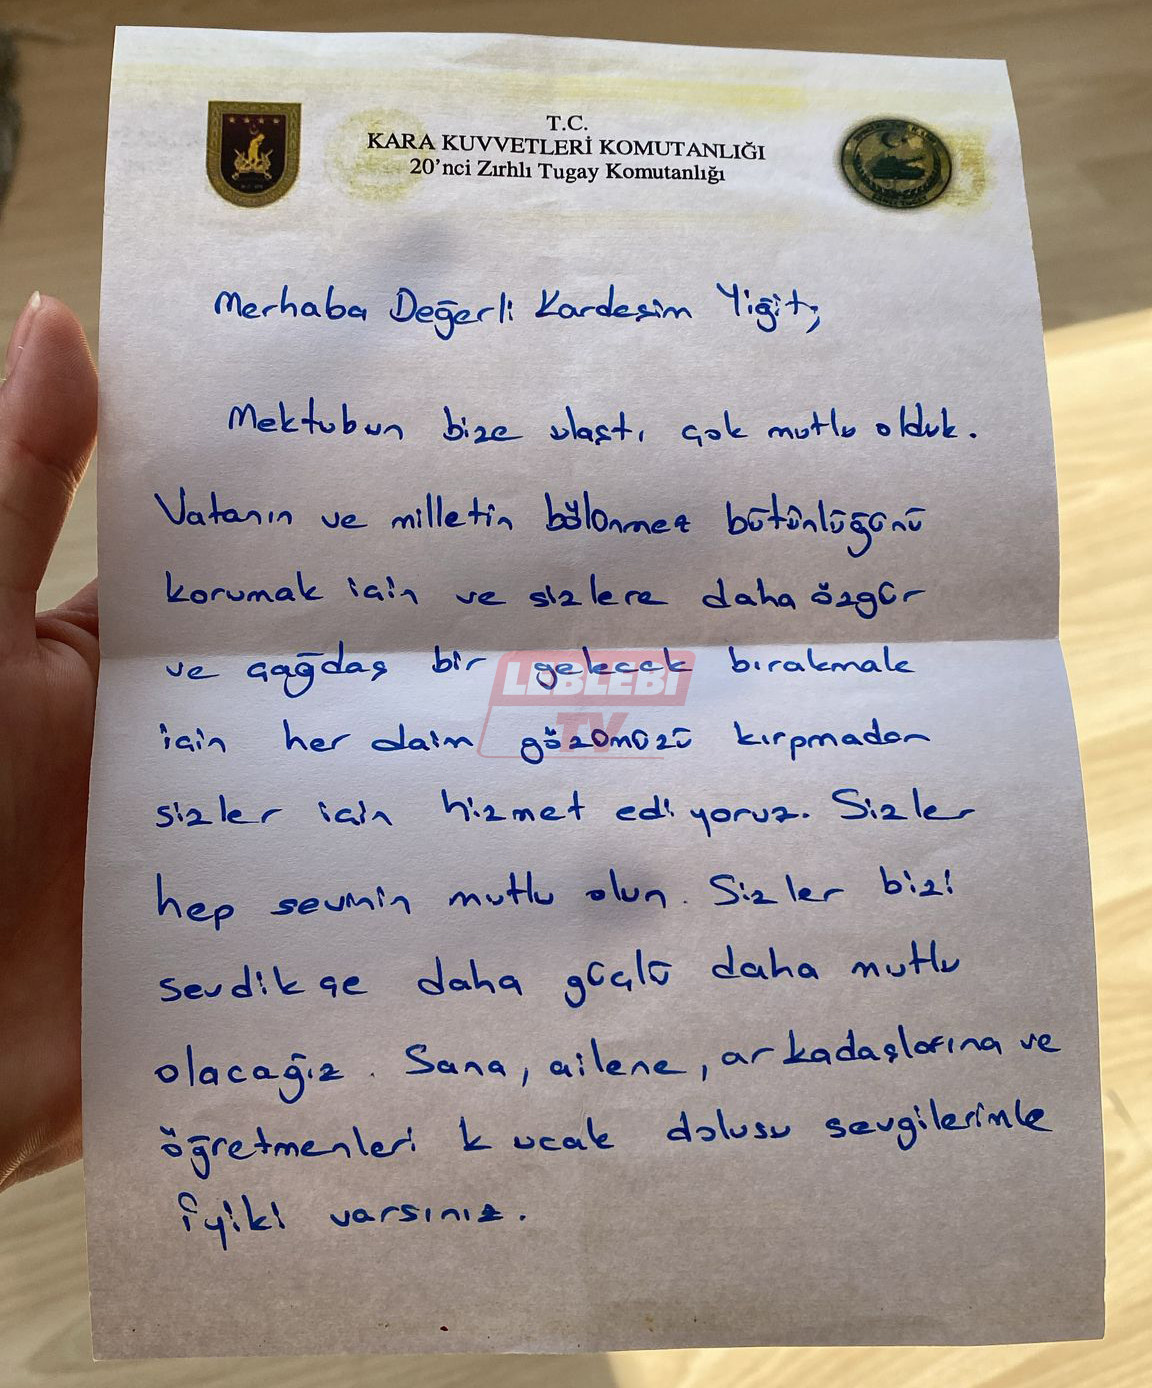 T.C.
KARA KUVVETLERİ KOMUTANLIĞI
20'nci Zırhlı Tugay Komutanlığı
Merhaba Değerli Kardeşim Yiğit;
Mektubun bize ulaştı çok mutlu olduk.
Vatanın ve milletin bölünmez bütünlüğünü
korumak için ve sizlere daha özgür
ve çağdaş bir gelecek bırakmak
LEBLEBİ
TV
için her daim gözümüzü kırpmadan
sizler için hizmet ediyoruz. Sizler
hep sevinin mutlu olun. Sizler bizi
sevdikçe daha güçlü daha mutlu
olacağız. Sana, ailene, arkadaşlarına ve
öğretmenleri kucak dolusu sevgilerimle
iyiki varsınız.